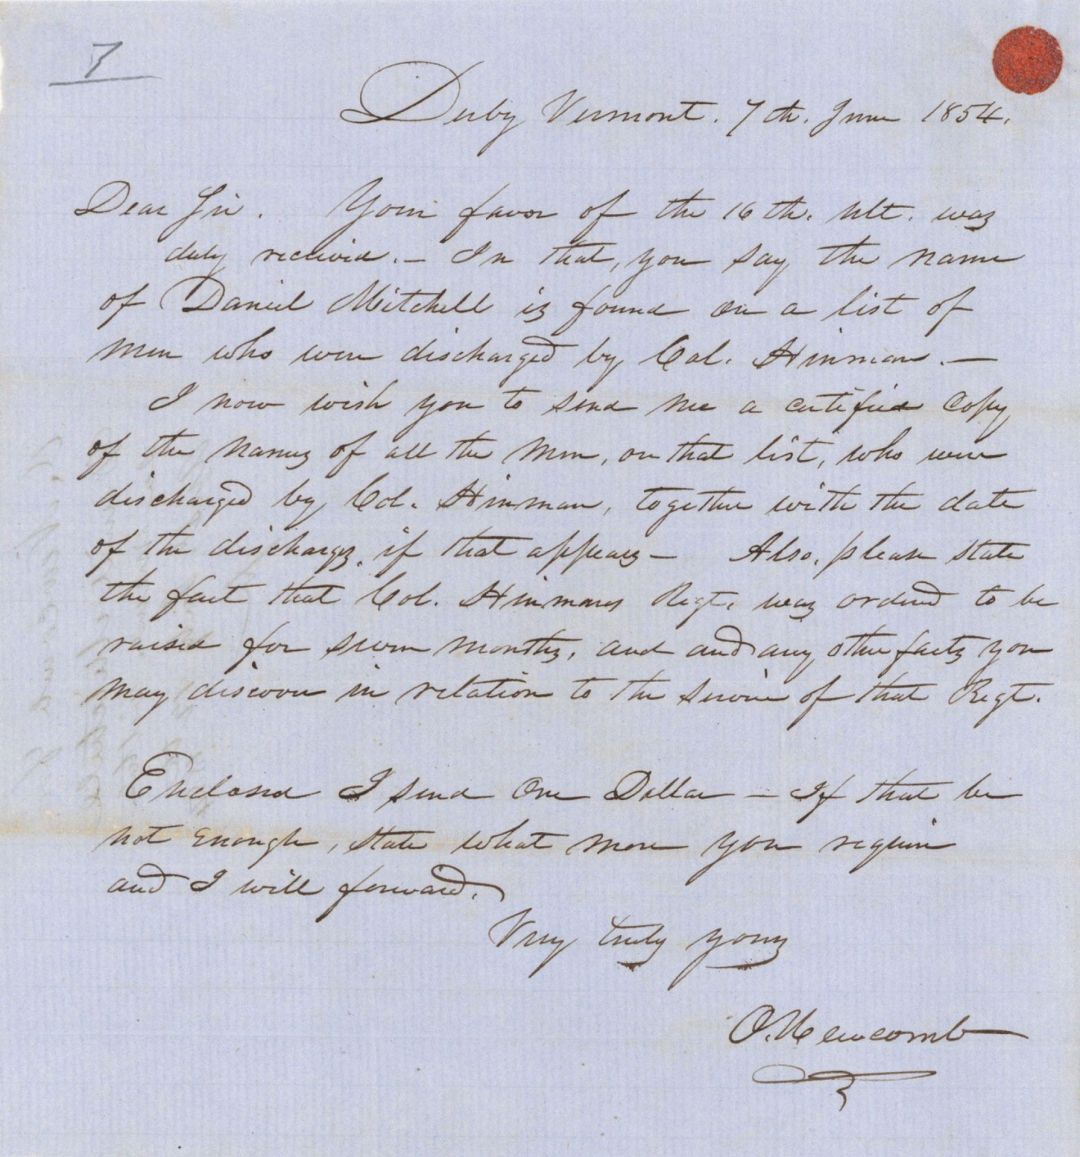 7
Derby Vermont. 7th. June 1854.
Dear Sir. Your favor of the 16th. ult. was
duly received. – In that, you say the name
of Daniel Mitchell is found on a list of
men who were discharged by Col. Hinman. –
I now wish you to send me a certified copy
of the names of all the men, on that list, who were
discharged by Col. Hinman, together with the date
of the discharges, if that appears – Also, please state
the fact that Col. Hinmans Regt. was ordered to be
raised for seven months, and and any other facts you
may discover in relation to the service of that Regt.
Enclosed I send One Dollar – If that be
not enough, state what more you require
and I will forward.
Very truly yours
O. Newcomb